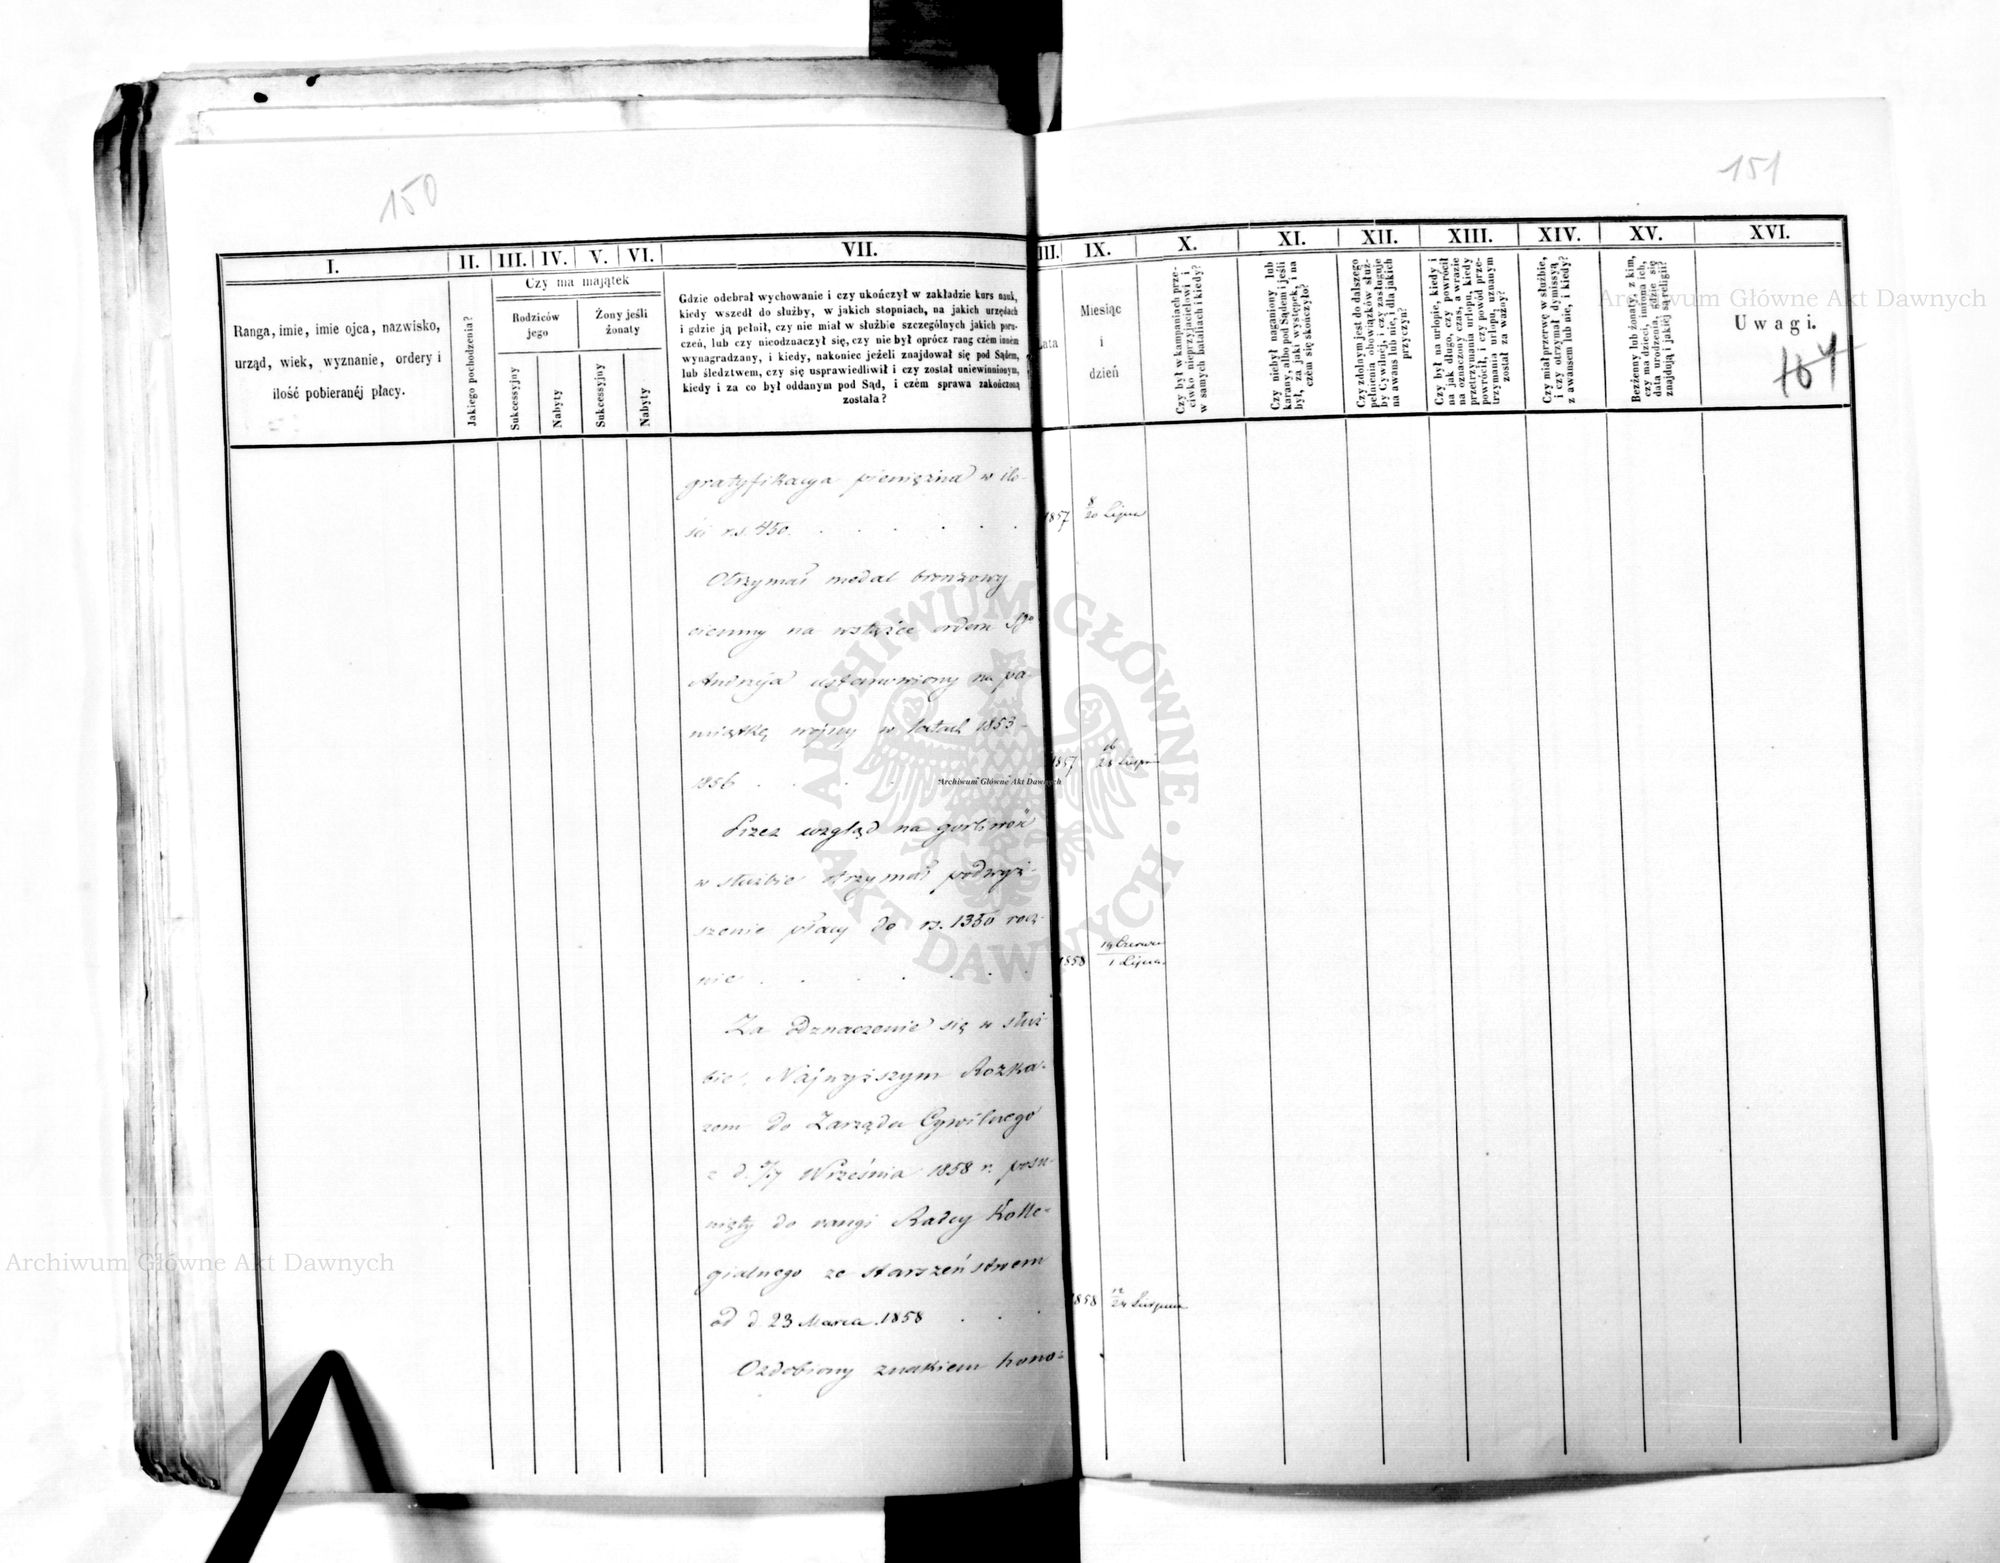 150
151
I.
II.
III.
IV.
V.
VI.
VII.
III.
IX.
X.
XI.
XII.
XIII.
XIV.
XV.
XVI.
Ranga, imie, imie ojca, nazwisko,
urząd, wiek, wyznanie, ordery i
ilość pobieranéj płacy.
Jakiego pochodzenia?
Czy ma majątek
Rodziców
jego
Żony jeśli
żonaty
Sukcessyjny
Nabyty
Sukcessyjny
Nabyty
Gdzie odebrał wychowanie i czy ukończył w zakładzie kurs nauk,
kiedy wszedł do służby, w jakich stopniach, na jakich urzędach
i gdzie ją pełnił, czy nie miał w służbie szczególnych jakich poru-
czeń, lub czy nieodznaczył się, czy nie był oprócz rang czém inném
wynagradzany, i kiedy, nakoniec jeżeli znajdował się pod Sądem,
lub śledztwem, czy się usprawiedliwił i czy został uniewinnionym,
kiedy i za co był oddanym pod Sąd, i czém sprawa zakończoną
została?
ata
Miesiąc
i
dzień
Czy był w kampaniach prze-
ciwko nieprzyjacielowi i
w samych bataliach i kiedy?
Czy niebył naganiony lub
karany, albo pod Sądem i jeśli
był, za jaki występek, i na
czém się skończyło?
Czy zdolnym jest do dalszego
pełnienia obowiązków służ-
by Cywilnej, i czy zasługuje
na awans lub nie, i dla jakich
przyczyn?
Czy był na urlopie, kiedy i
na jak długo, czy powrócił
na oznaczony czas, a wrazie
przetrzymania urlopu, kiedy
powrócił, i czy powód prze-
trzymania urlopu, uznanym
został za ważny?
Czy miał przerwę w służbie,
i czy otrzymał dymissyą
z awansem lub nie, i kiedy?
Bezżenny lub żonaty, z kim,
czy ma dzieci, imiona ich,
data urodzenia, gdzie się
znajdują i jakiéj są religii?
Uwagi.
gratyfikacya pieniężna w ilo-
ści rs. 450. 1857 8/20 Lipca
Otrzymał medal bronzowy
ciemny na wstążce orderu Sgo
Andrzeja ustanowiony na pa-
miątkę wojny w latach 1853-
1856 1857
Przez wzgląd na gorliwość
w służbie otrzymał podwyż-
szenie płacy do rs. 1350 rocz-
nie 1858 19 Czerwca/1 Lipca
Za odznaczenie się w służ-
bie, Najwyższym Rozka-
zem do Zarządu Cywilnego
z d. Września 1858 r. posu-
nięty do rangi Radcy Kolle-
gialnego ze starszeństwem
od d. 23 Marca 1858 1858 12/24 Sierpnia
Ozdobiony znakiem hono-
Archiwum Główne Akt Dawnych
Archiwum Główne Akt Dawnych
Archiwum Główne Akt Dawnych
ARCHIWUM GŁÓWNE · AKT DAWNYCH ·